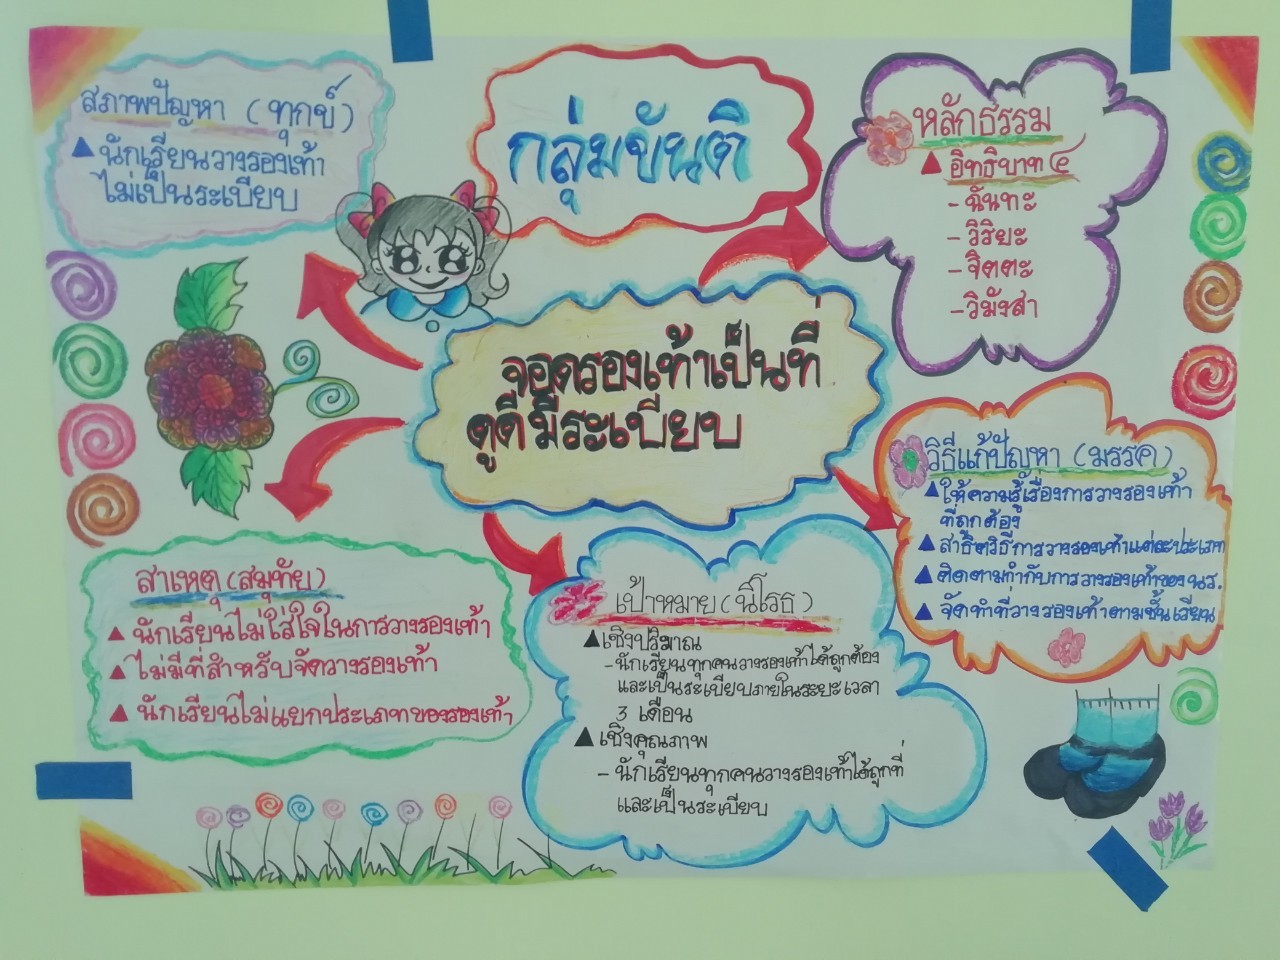 สภาพปัญหา (ทุกข์)
▲ นักเรียนวางรองเท้า
ไม่เป็นระเบียบ
กลุ่มขันติ
หลักธรรม
▲ อิทธิบาท ๔
- ฉันทะ
- วิริยะ
- จิตตะ
- วิมังสา
จอดรองเท้าเป็นที่
ดูดีมีระเบียบ
วิธีแก้ปัญหา (มรรค)
▲ ให้ความรู้เรื่องการวางรองเท้า
ที่ถูกต้อง
▲ สาธิตวิธีการวางรองเท้าแต่ละประเภท
▲ ติดตามกำกับการวางรองเท้าของ นร.
▲ จัดทำที่วางรองเท้าตามชั้นเรียน
สาเหตุ (สมุทัย)
▲ นักเรียนไม่ใส่ใจในการวางรองเท้า
▲ ไม่มีที่สำหรับจัดวางรองเท้า
▲ นักเรียนไม่แยกประเภทของรองเท้า
เป้าหมาย (นิโรธ)
▲ เชิงปริมาณ
- นักเรียนทุกคนวางรองเท้าได้ถูกต้อง
และเป็นระเบียบภายในระยะเวลา
3 เดือน
▲ เชิงคุณภาพ
- นักเรียนทุกคนวางรองเท้าได้ถูกที่
และเป็นระเบียบ